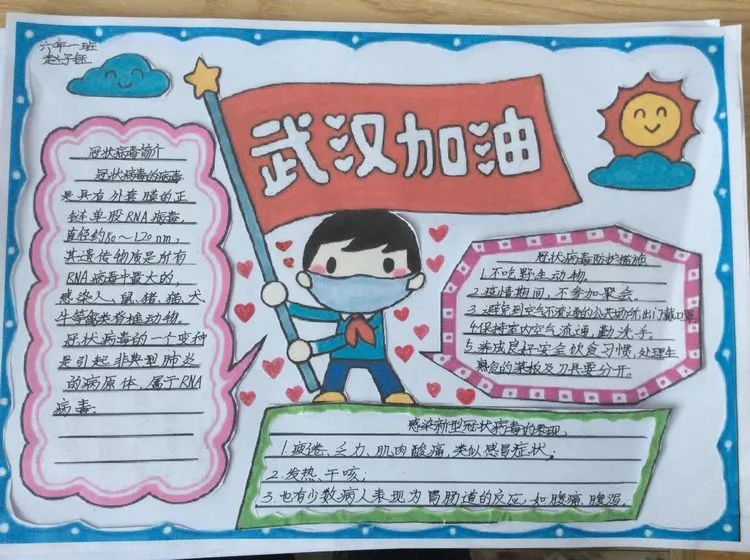 六年一班
武汉加油
冠状病毒简介
冠状病毒的病毒
是具有外套膜的正
链单股RNA病毒,
直径约80～120nm,
其遗传物质是所有
RNA病毒中最大的,
感染人、鼠、猪、猫、犬
牛等禽类脊椎动物.
冠状病毒的一个变种
是引起非典型肺炎
的病原体,属于RNA
病毒.
冠状病毒防护措施
1.不吃野生动物。
2.疫情期间,不参加聚会。
3.避免到空气不流通的公共场所,出门戴口罩
4.保持室内空气流通,勤洗手。
5.养成良好安全饮食习惯,处理生
熟食的菜板及刀具要分开。
感染新型冠状病毒的表现。
1.疲倦、乏力、肌肉酸痛,类似感冒症状;
2.发热、干咳;
3.也有少数病人表现为胃肠道的反应,如腹痛、腹泻。